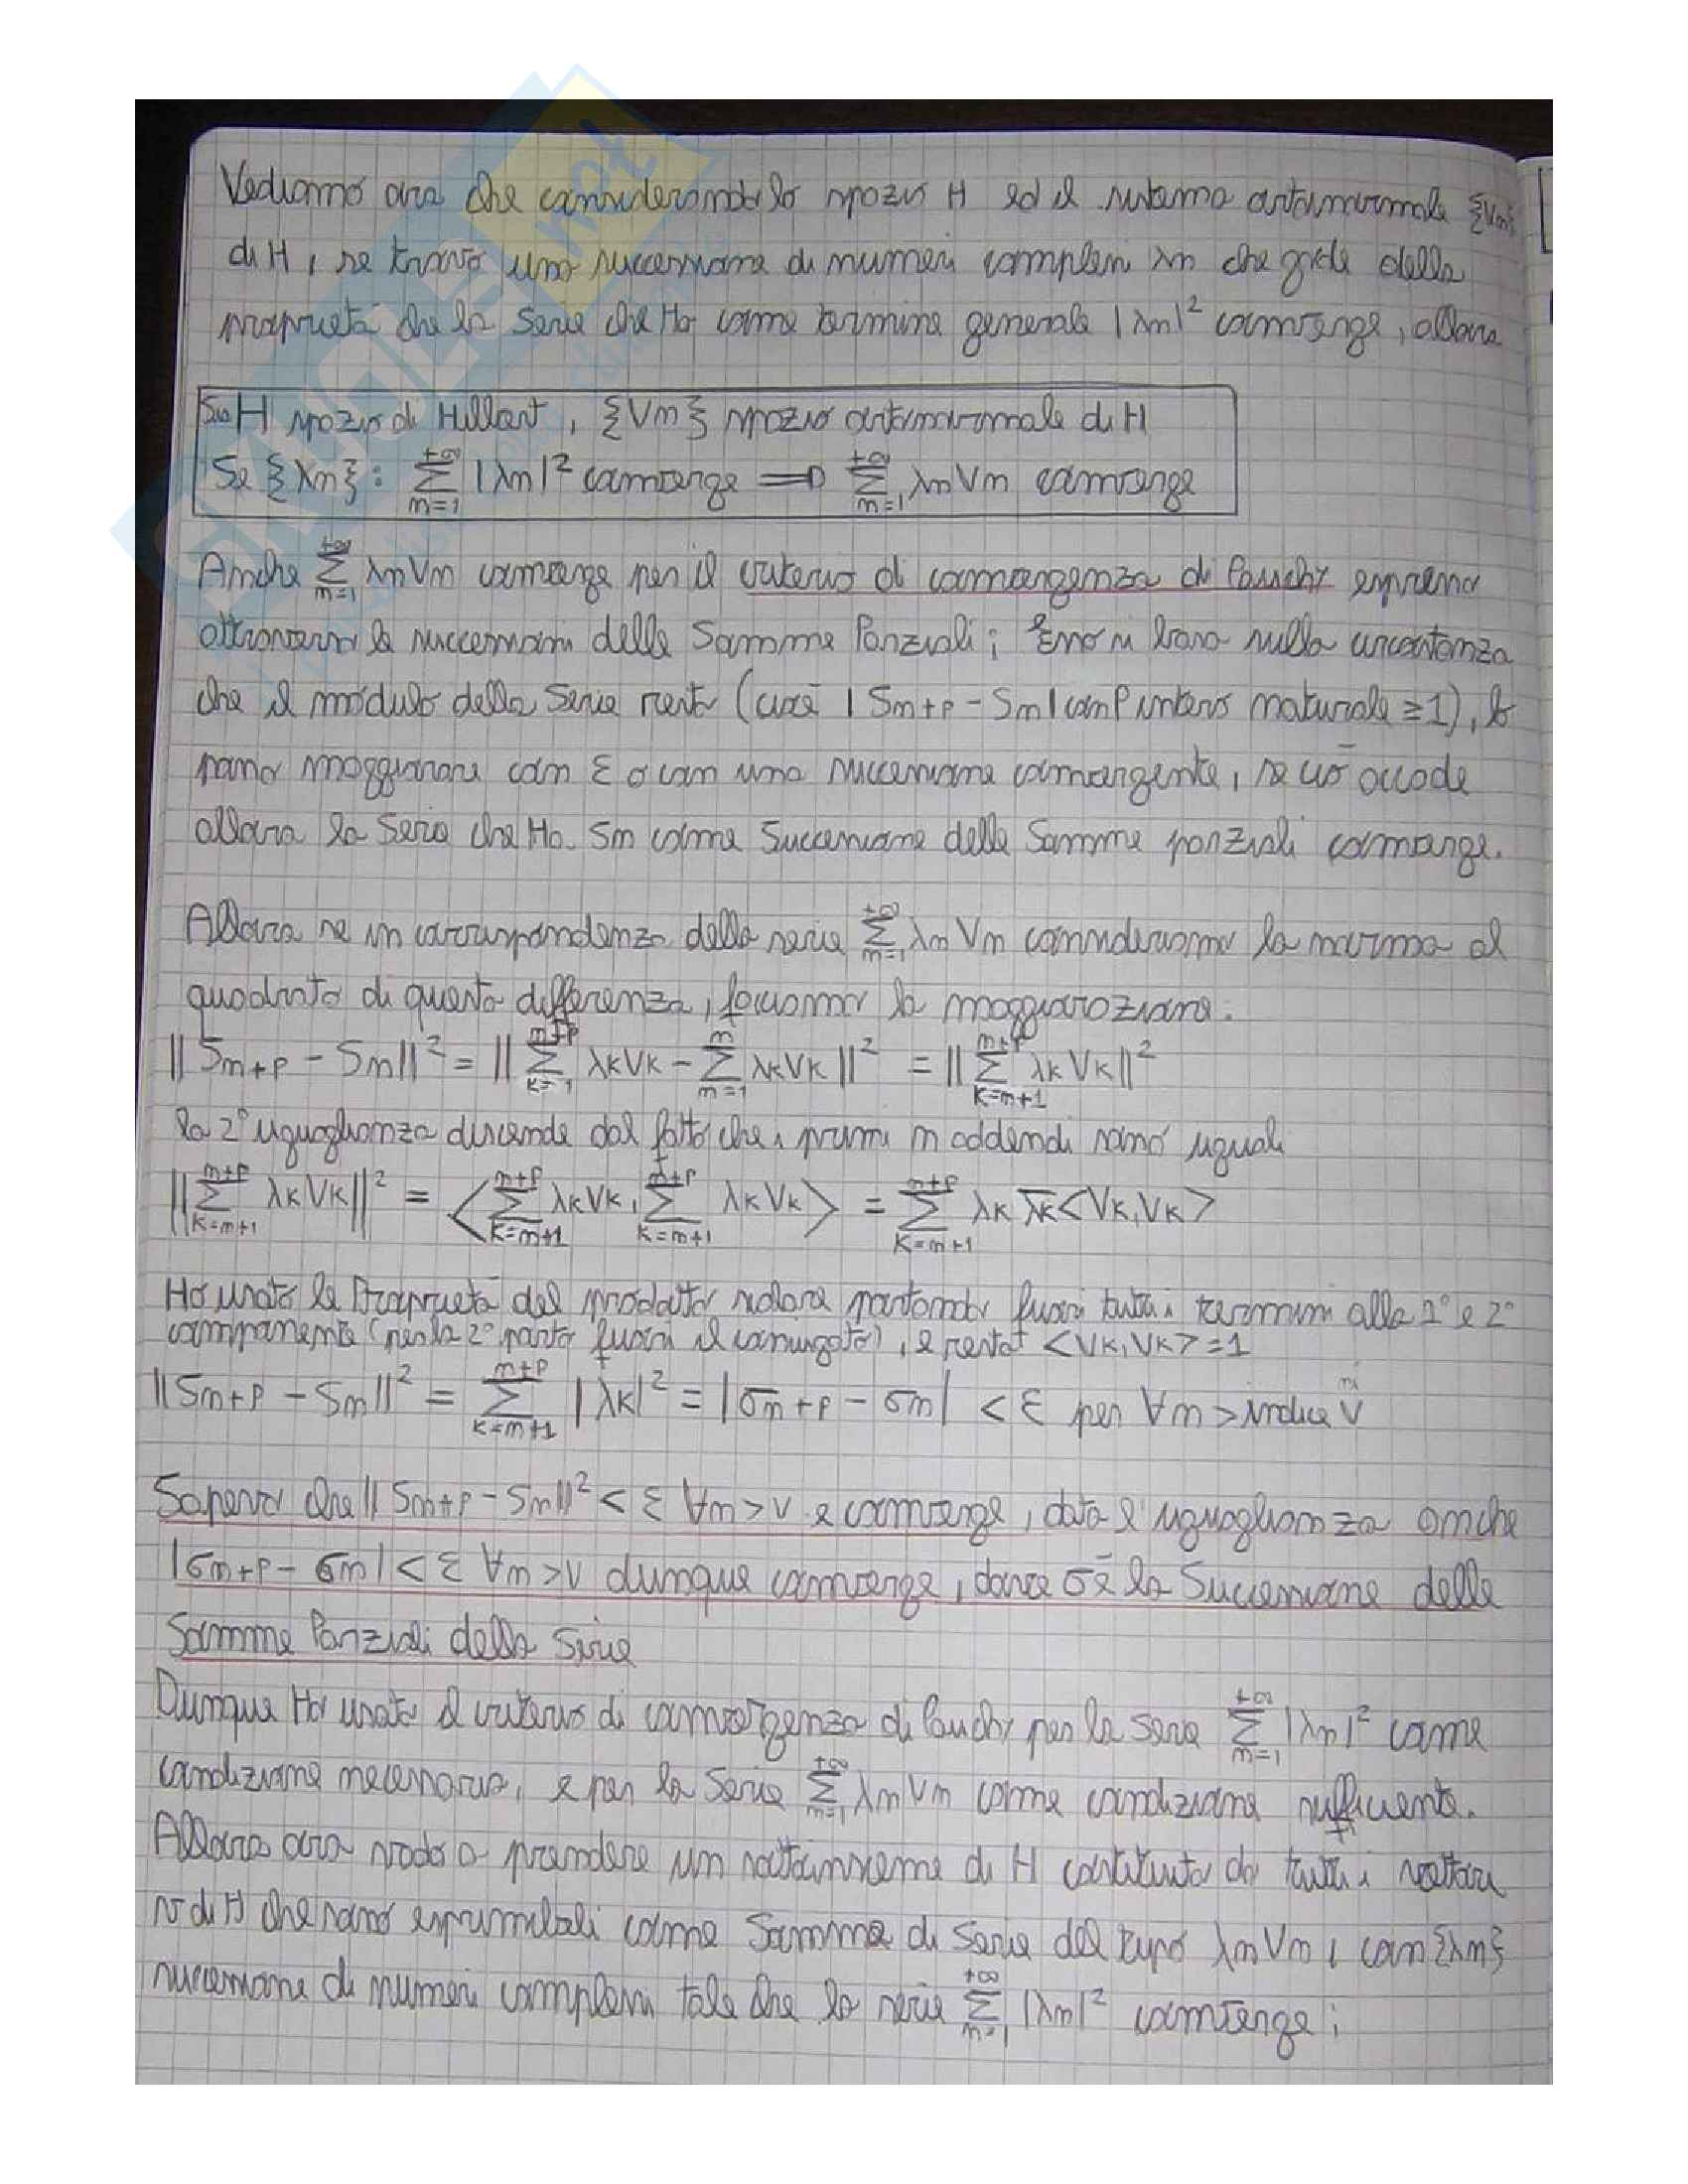 Vediamo ora che considerando lo spazio H ed il sistema ortonormale {Vn}
di H, se trovo una successione di numeri complessi λn che gode della
proprietà che la serie che Ho come termine generale |λn|² converge, allora
Sia H spazio di Hilbert, {Vn} spazio ortonormale di H
Se {λn}: +∞ Σ n=1 |λn|² converge ⟹ +∞ Σ n=1 λnVn converge
Anche +∞ Σ n=1 λnVn converge per il criterio di convergenza di Cauchy espresso
attraverso le successioni delle Somme Parziali; Esso si basa sulla circostanza
che il modulo della Serie resto (cioè |Sn+p - Sn| con P intero naturale ≥1), lo
posso maggiorare con ε o con una successione convergente, se ciò accade
allora la Serie che Ho Sn come Successione delle Somme parziali converge.
Allora se in corrispondenza della serie +∞ Σ n=1 λnVn consideriamo la norma al
quadrato di questa differenza, facciamo la maggiorazione:
||Sn+p - Sn||² = || n+p Σ k=1 λkVk - n Σ n=1 λkVk ||² = || n+p Σ k=n+1 λkVk||²
la 2° uguaglianza discende dal fatto che i primi n addendi sono uguali
|| n+p Σ k=n+1 λkVk||² = < n+p Σ k=n+1 λkVk, n+p Σ k=n+1 λkVk > = n+p Σ k=n+1 λk λ̄k<Vk,Vk>
Ho usato le Proprietà del prodotto scalare portando fuori tutti i termini alla 1° e 2°
componente (per la 2° porto fuori il coniugato), e resta <Vk,Vk>=1
||Sn+p - Sn||² = n+p Σ k=n+1 |λk|² = |σn+p - σn| < ε per ∀n > indice ν ni
Sapevo che ||Sn+p - Sn||² < ε ∀n>ν e converge, data l'uguaglianza anche
|σn+p - σn| < ε ∀n>ν dunque converge, dove σ è la Successione delle
Somme Parziali della Serie
Dunque Ho usato il criterio di convergenza di Cauchy per la serie +∞ Σ n=1 |λn|² come
condizione necessaria, e per la Serie +∞ Σ n=1 λnVn come condizione sufficiente.
Allora ora vado a prendere un sottoinsieme di H costituito da tutti i vettori
v di H che sono esprimibili come Somma di Serie del tipo λnVn, con {λn}
successione di numeri complessi tale che la serie +∞ Σ n=1 |λn|² converge;